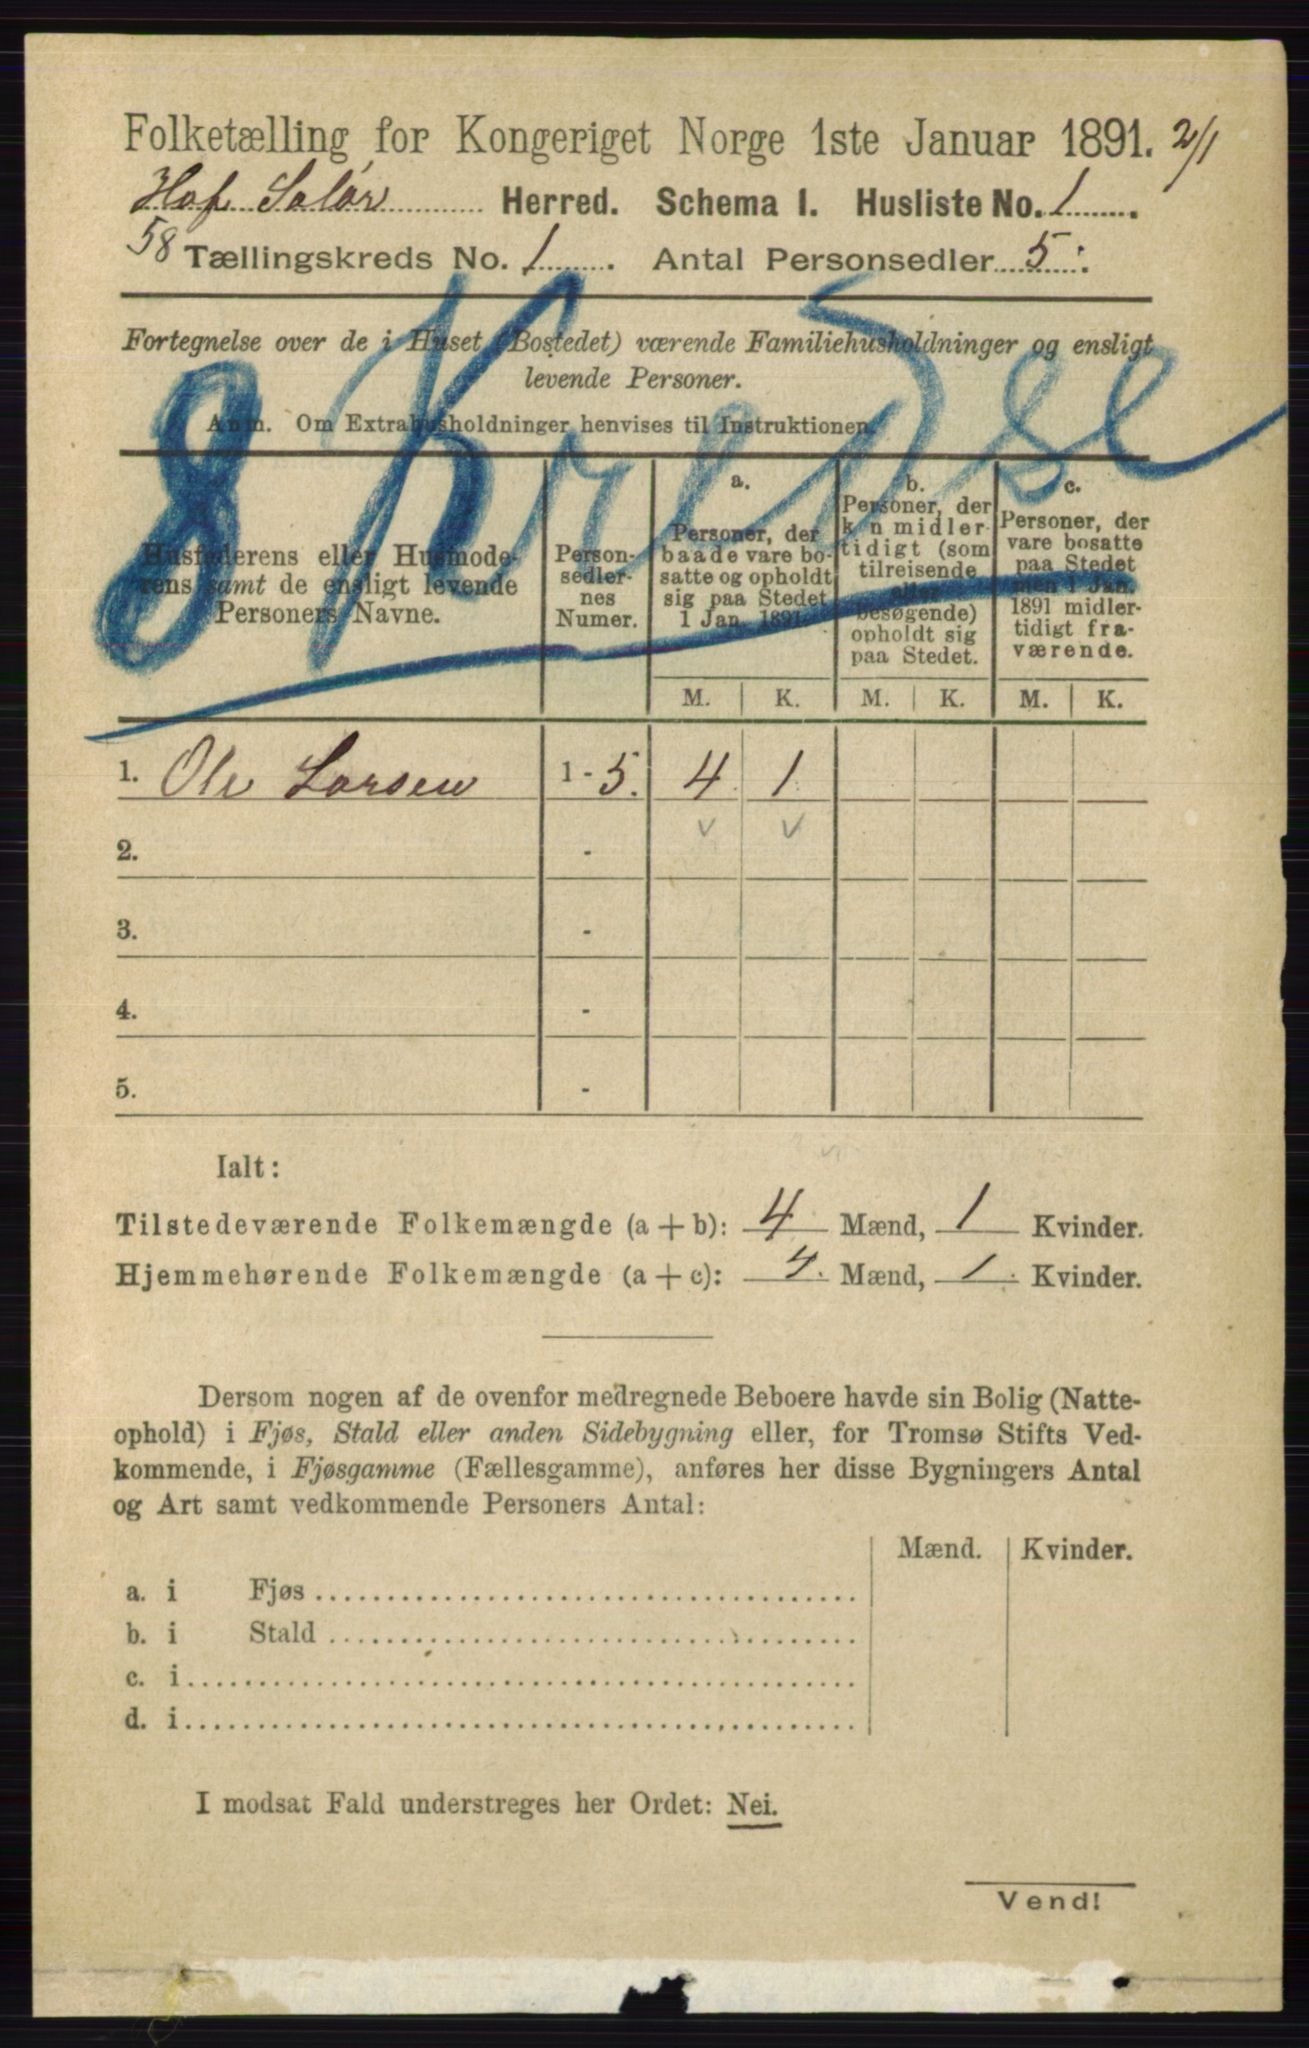 Folketælling for Kongeriget Norge 1ste Januar 1891. 2/1
Hof Solør Herred. Schema I. Husliste No. 1
58 Tællingskreds No. 1. Antal Personsedler 5.
Fortegnelse over de i Huset (Bostedet) værende Familiehusholdninger og ensligt
levende Personer.
Anm. Om Extrahusholdninger henvises til Instruktionen.
8 Kredse
Husfaderens eller Husmode-
rens samt de ensligt levende
Personers Navne.
Person-
sedler-
nes
Numer.
a.
Personer, der
baade vare bo-
satte og opholdt
sig paa Stedet
1 Jan. 1891.
b.
Personer, der
kun midler-
tidigt (som
tilreisende
eller
besøgende)
opholdt sig
paa Stedet.
c.
Personer, der
vare bosatte
paa Stedet
men 1 Jan.
1891 midler-
tidigt fra-
værende.
M. K. M. K. M. K.
1. Ole Larsen 1 - 5. 4 1
v v
2. -
3. -
4. -
5. -
Ialt:
Tilstedeværende Folkemængde (a + b): 4 Mænd, 1 Kvinder.
Hjemmehørende Folkemængde (a + c): 4. Mænd, 1. Kvinder.
Dersom nogen af de ovenfor medregnede Beboere havde sin Bolig (Natte-
ophold) i Fjøs, Stald eller anden Sidebygning eller, for Tromsø Stifts Ved-
kommende, i Fjøsgamme (Fællesgamme), anføres her disse Bygningers Antal
og Art samt vedkommende Personers Antal:
Mænd. Kvinder.
a. i Fjøs
b. i Stald
c. i
d. i
I modsat Fald understreges her Ordet: Nei.
Vend!